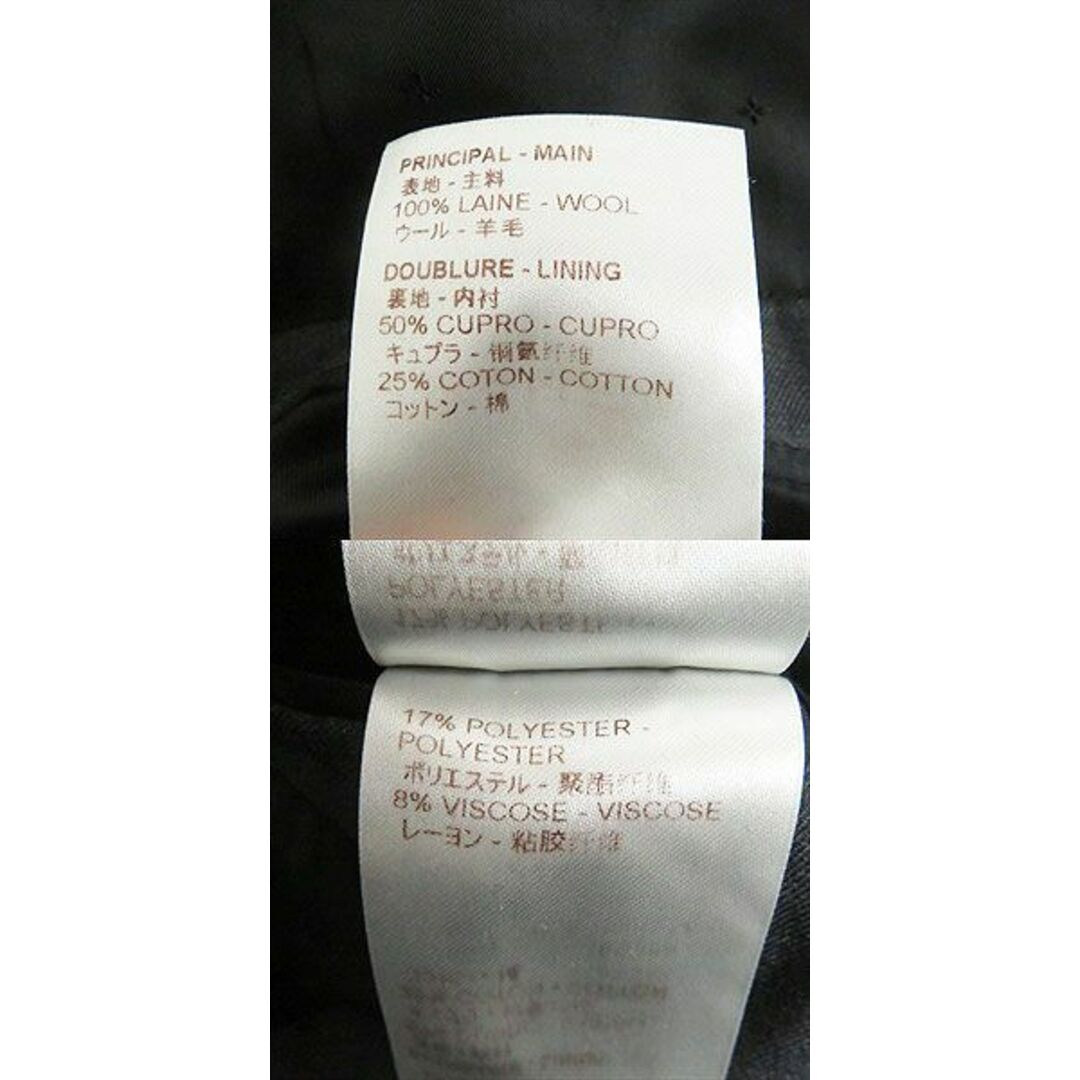 PRINCIPAL - MAIN
表地 - 主料
100% LAINE - WOOL
ウール - 羊毛
DOUBLURE - LINING
裏地 - 内衬
50% CUPRO - CUPRO
キュプラ - 铜氨纤维
25% COTON - COTTON
コットン - 棉
17% POLYESTER -
POLYESTER
ポリエステル - 聚酯纤维
8% VISCOSE - VISCOSE
レーヨン - 粘胶纤维